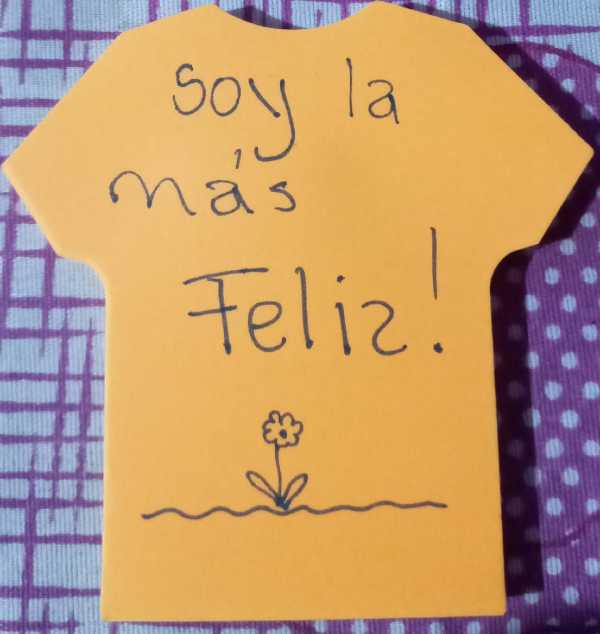 Soy la
más
Feliz!